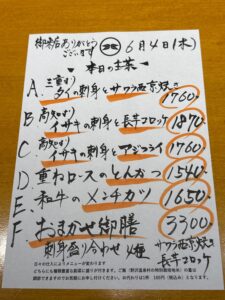 御来店ありがとう
ございます
6月4日(木)
本日の主菜
A. 三重すり
タイの刺身とサワラ西京焼き
1760
B 高知すり
イサキの刺身と長芋コロッケ
1870
C 高知すり
イサキの刺身とアジフライ
1760
D. 重ねロースのとんかつ
1540
E. 和牛のメンチカツ
1650
F おまかせ御膳
3300
刺身盛り合わせ 4種
サワラ西京焼き
長芋コロッケ
日々の仕入によりメニューが変わります